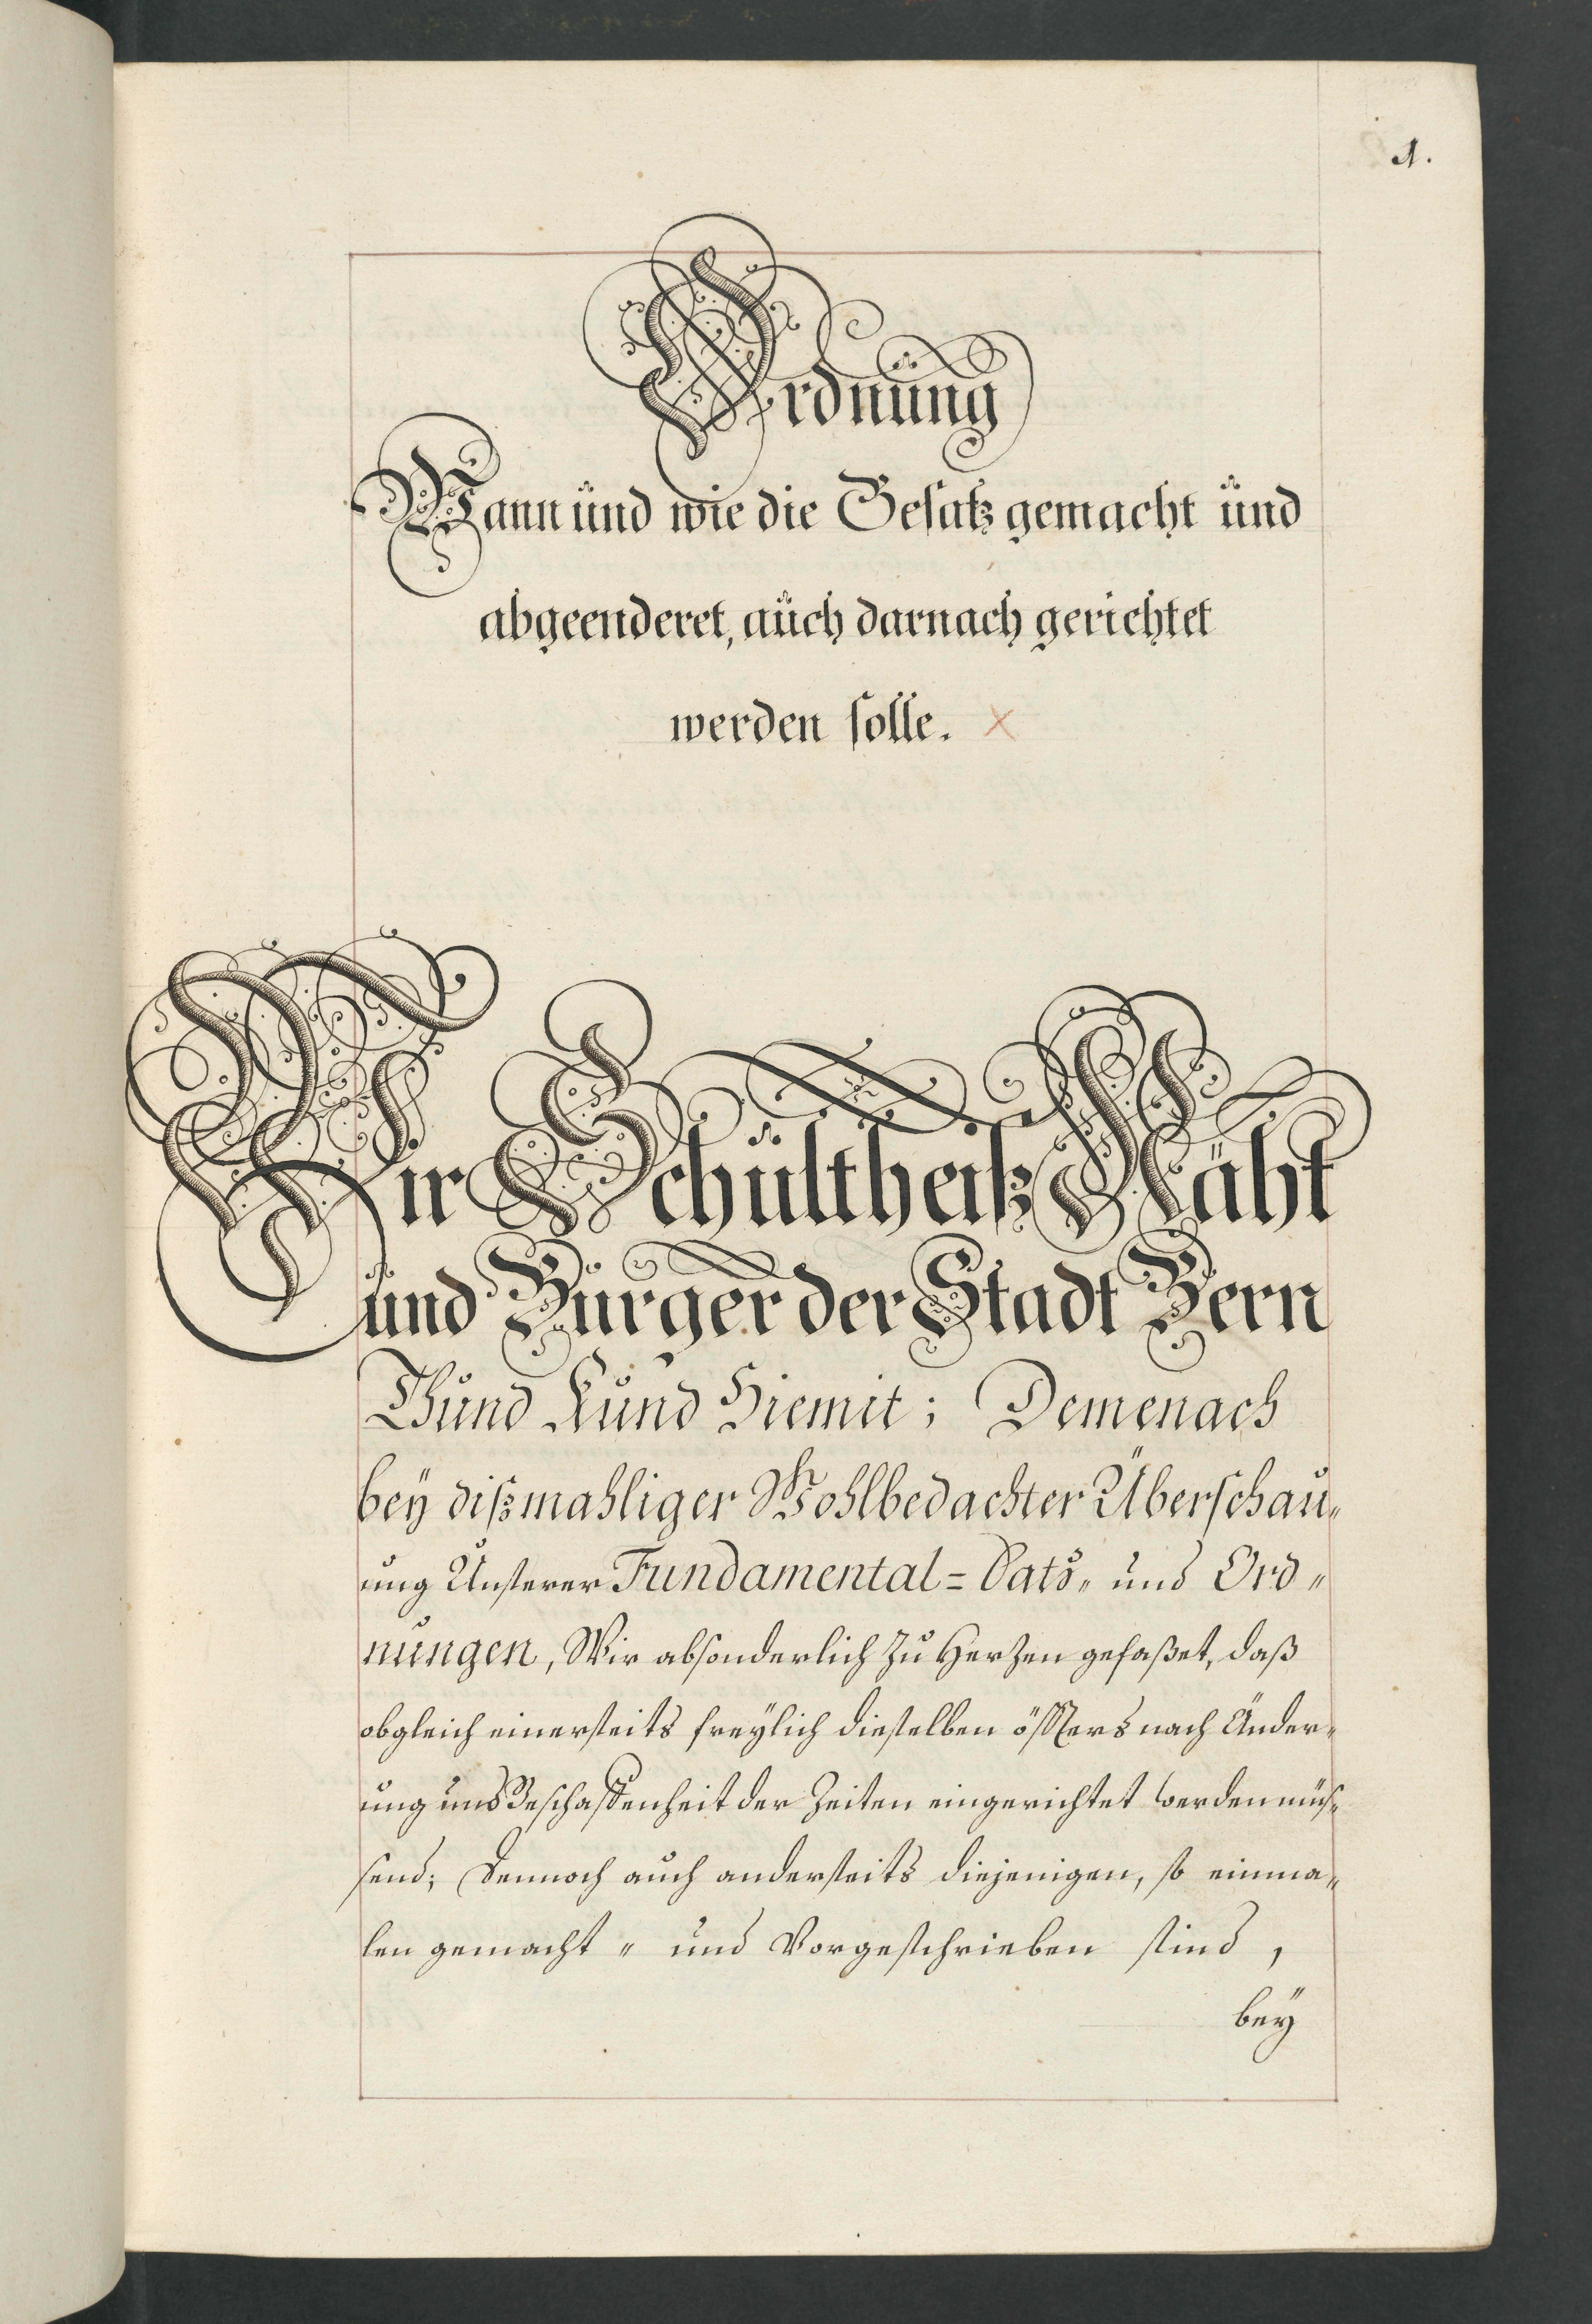 1.
Ordnung
Wann und wie die Gesatz gemacht und
abgeenderet, auch darnach gerichtet
werden solle.
Wir Schultheiß Räht
und Burger der Stadt Bern
Thund Kund Hiemit; Demenach
bey dißmahliger Wohlbedachter Überschau„
ung Unserer Fundamental= Satz„ und Ord„
nungen, Wir absonderlich zu Herzen gefaßet, daß
obgleich einerseits freylich dieselben öffters nach Änder„
ung und Beschaffenheit der Zeiten eingerichtet werden müs„
send; Dennoch auch anderseits diejenigen, so einma„
len gemacht „ und Vorgeschrieben sind,
bey